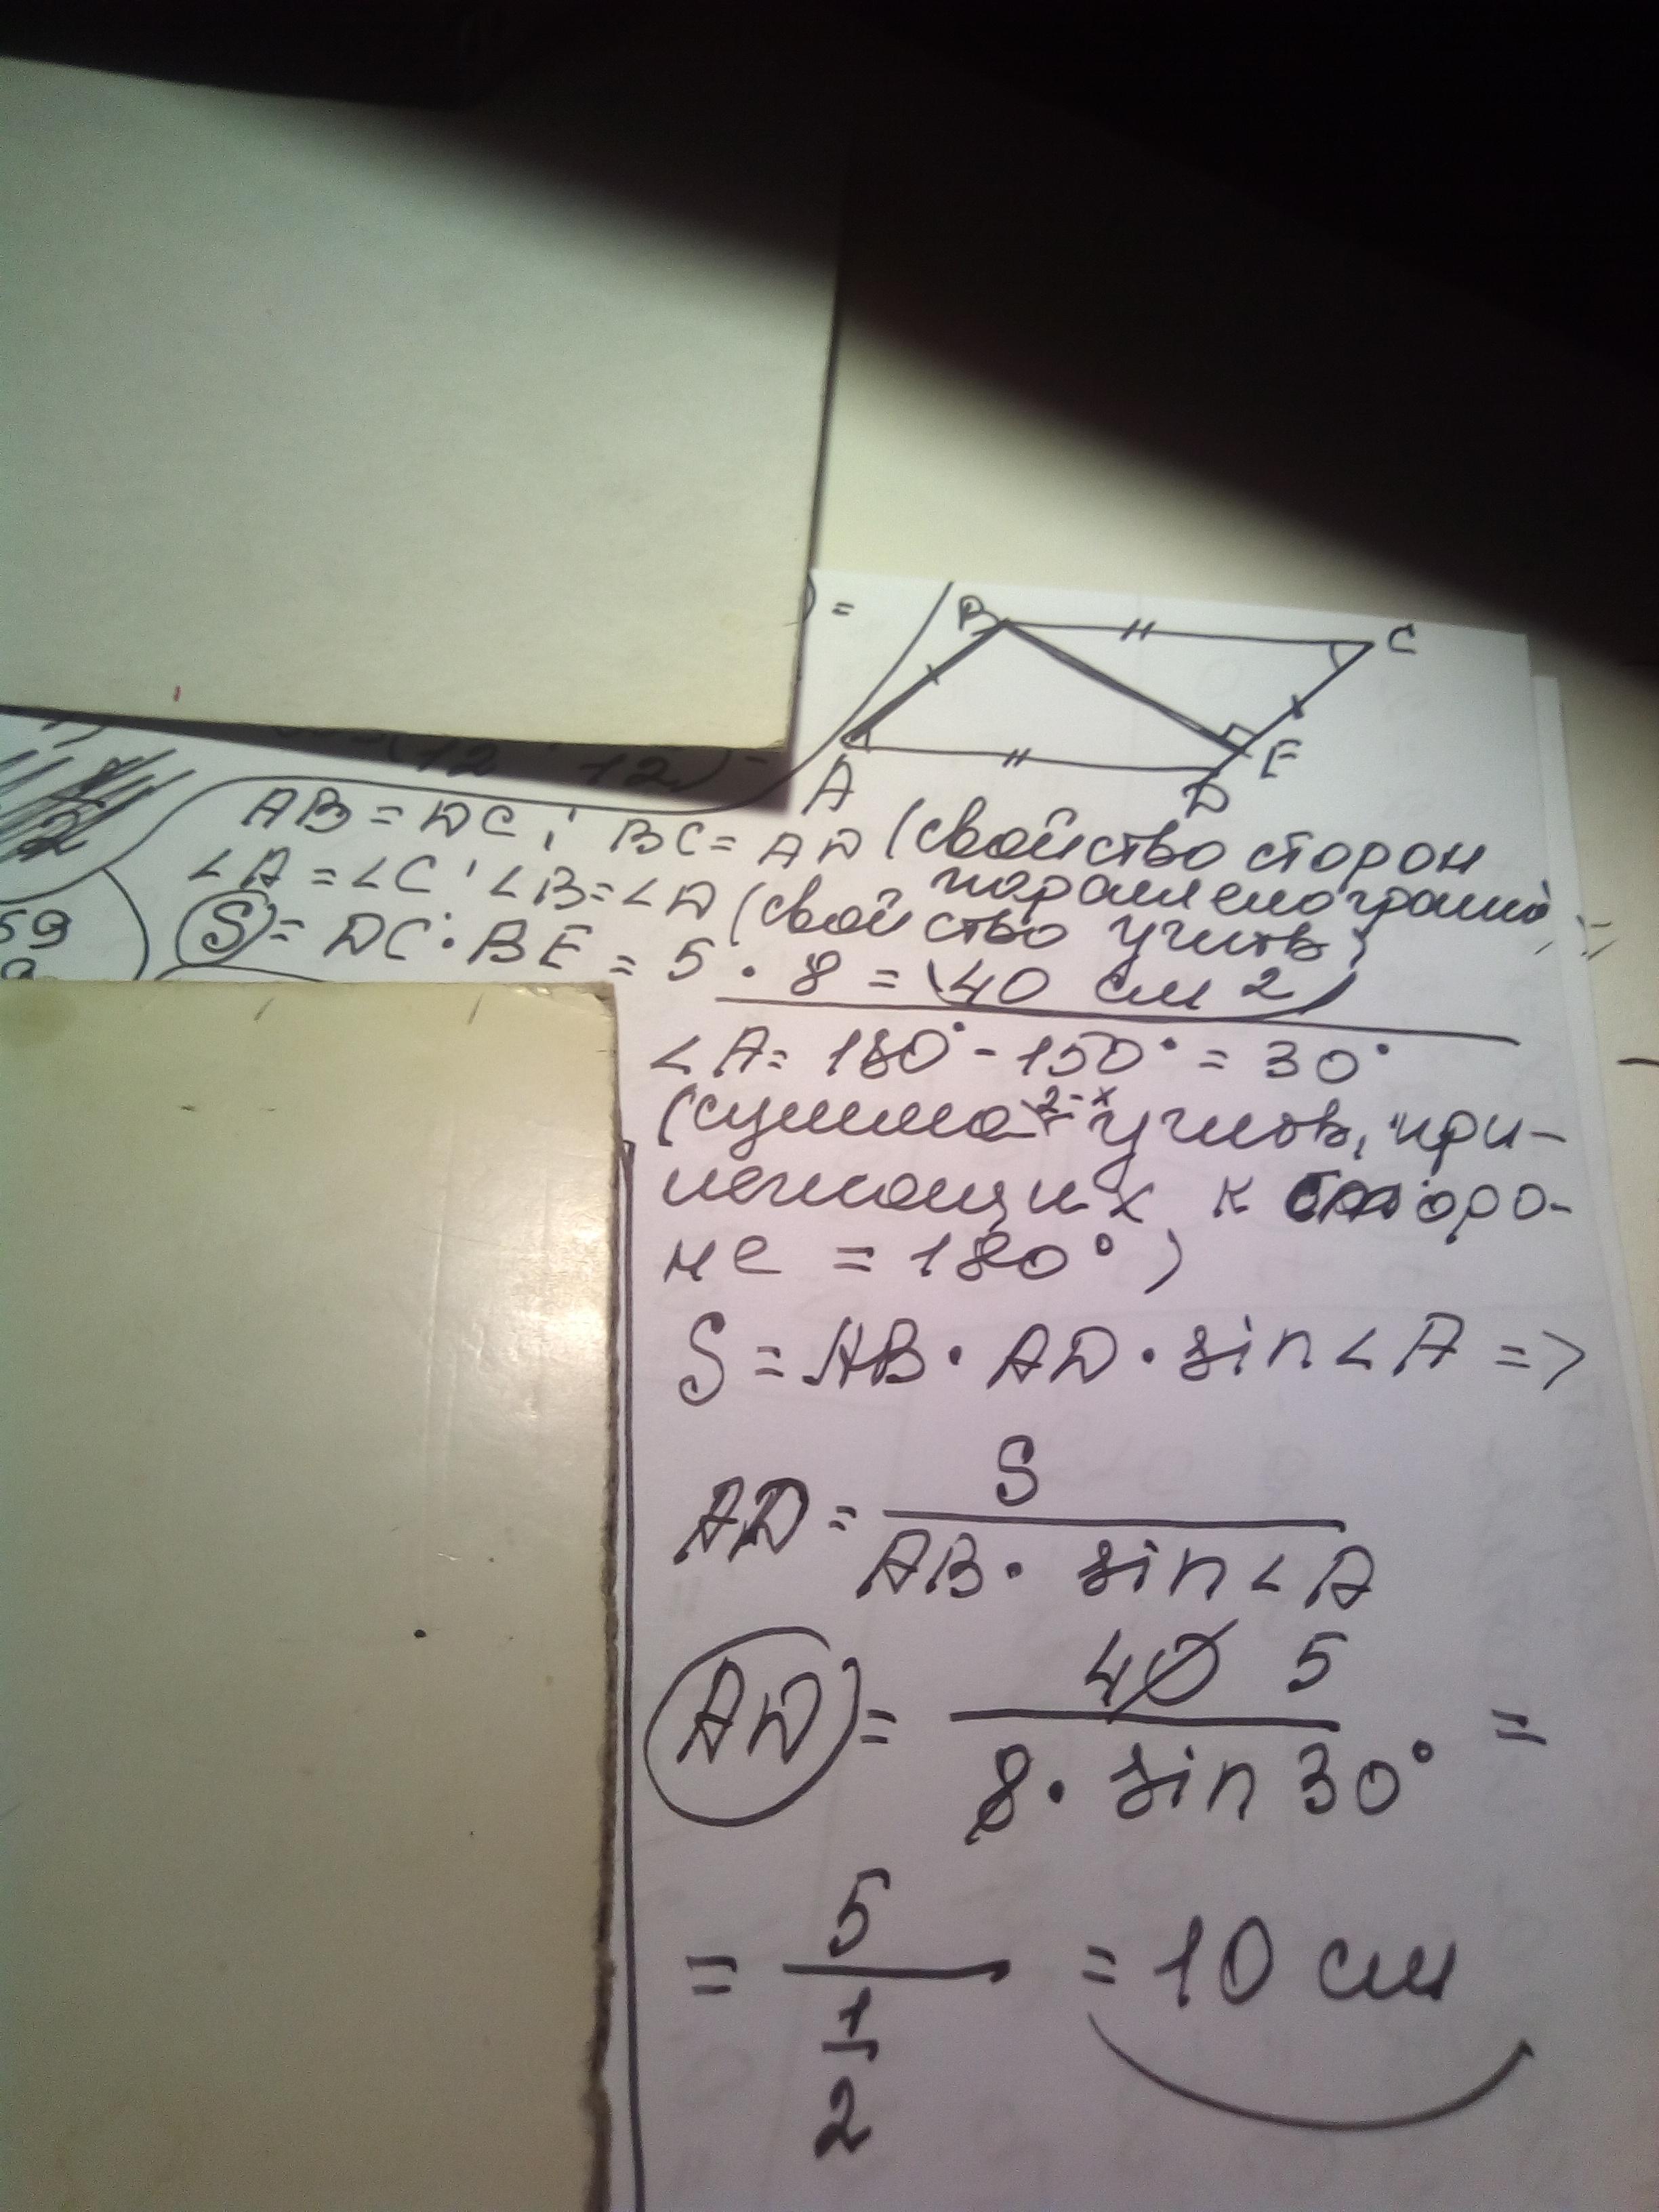 ) =
B
C
A
E
D
12 12) -
2
59
AB = DC; BC = AD (свойство сторон
параллелограмма)
∠A = ∠C, ∠B = ∠D (свойство углов)
S = DC · BE = 5 · 8 = 40 см 2
∠A = 180° - 150° = 30°
(сумма 2-х углов, при-
лежащих к сторо-
не = 180°)
S = AB · AD · sin∠A =>
AD = S / AB · sin∠A
AD = 40 5 / 8 · sin 30° =
= 5 / 1/2 = 10 см